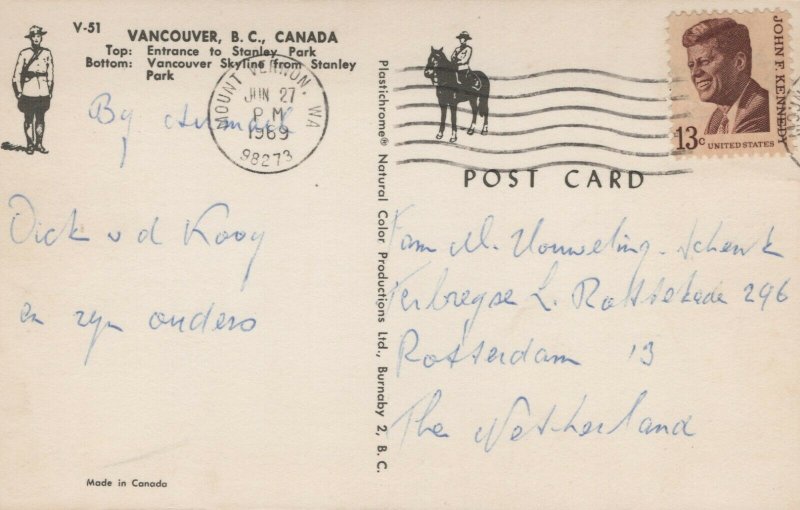 V-51
VANCOUVER, B. C., CANADA
Top: Entrance to Stanley Park
Bottom: Vancouver Skyline from Stanley
Park
MOUNT VERNON, WA
JUN 27
P M
1969
98273
JOHN F. KENNEDY
13c UNITED STATES
POST CARD
By
Dick v d Kooy
en zyn ouders
Made in Canada
Plastichrome® Natural Color Productions Ltd., Burnaby 2, B. C.
Fam M. Houweling-Schenk
Terbregse L. Rottekade 296
Rotterdam 13
The Netherland